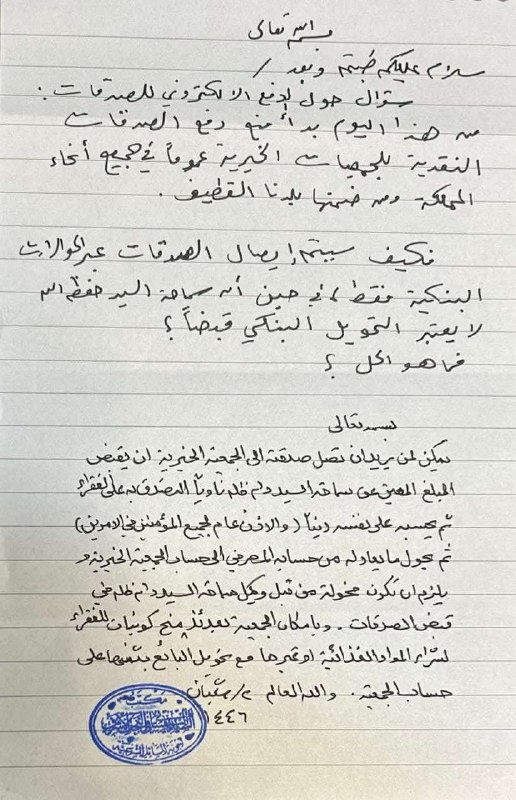 بسم الله تعالى
سلام عليكم طبتم وبعد /
سؤال حول الدفع الالكتروني للصدقات :
من هذا اليوم بدأ منع دفع الصدقات
النقدية للجمعيات الخيرية عموماً في جميع أنحاء
المملكة ومن ضمنها بلدنا القطيف .
فكيف سيتم إيصال الصدقات عبر الحوالات
البنكية فقط ، في حين أن سماحة السيد حفظه الله
لا يعتبر التحويل البنكي قبضاً ؟
فما هو الحل ؟
بسمه تعالى
يمكن لمن يريد ان تصل صدقته الى الجمعية الخيرية ان يقبض
المبلغ المعين عن سماحة السيد دام ظله ناوياً التصدق به على الفقراء
ثم يحسبه على نفسه ديناً ( والاذن عام لجميع المؤمنين في الامرين )
ثم يحول ما يعادله من حسابه المصرفي الى حساب الجمعية الخيرية و
يلزم ان تكون مخولة من قبل وكيل سماحة السيد دام ظله في
قبض الصدقات . وبامكان الجمعية بعدئذ منح كوبونات للفقراء
لشراء المواد الغذائية او غيرها مع تخويل البائع بثمنها على
حساب الجمعية . والله العالم ٢/ شعبان
١٤٤٦
مكتب